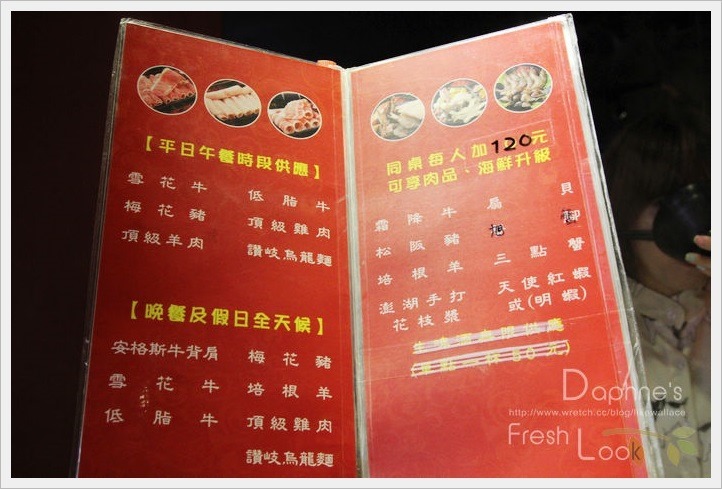 【平日午餐時段供應】
雪花牛 低脂牛
梅花豬 頂級雞肉
頂級羊肉 讚岐烏龍麵
【晚餐及假日全天候】
安格斯牛背肩 梅花豬
雪花牛 培根羊
低脂牛 頂級雞肉
讚岐烏龍麵
同桌每人加120元
可享肉品、海鮮升級
霜降牛 扇貝
松阪豬
培根羊 三點蟹
澎湖手打花枝漿 天使紅蝦
或(明蝦)
Daphne's
http://www.wretch.cc/blog/likewallace
Fresh Look